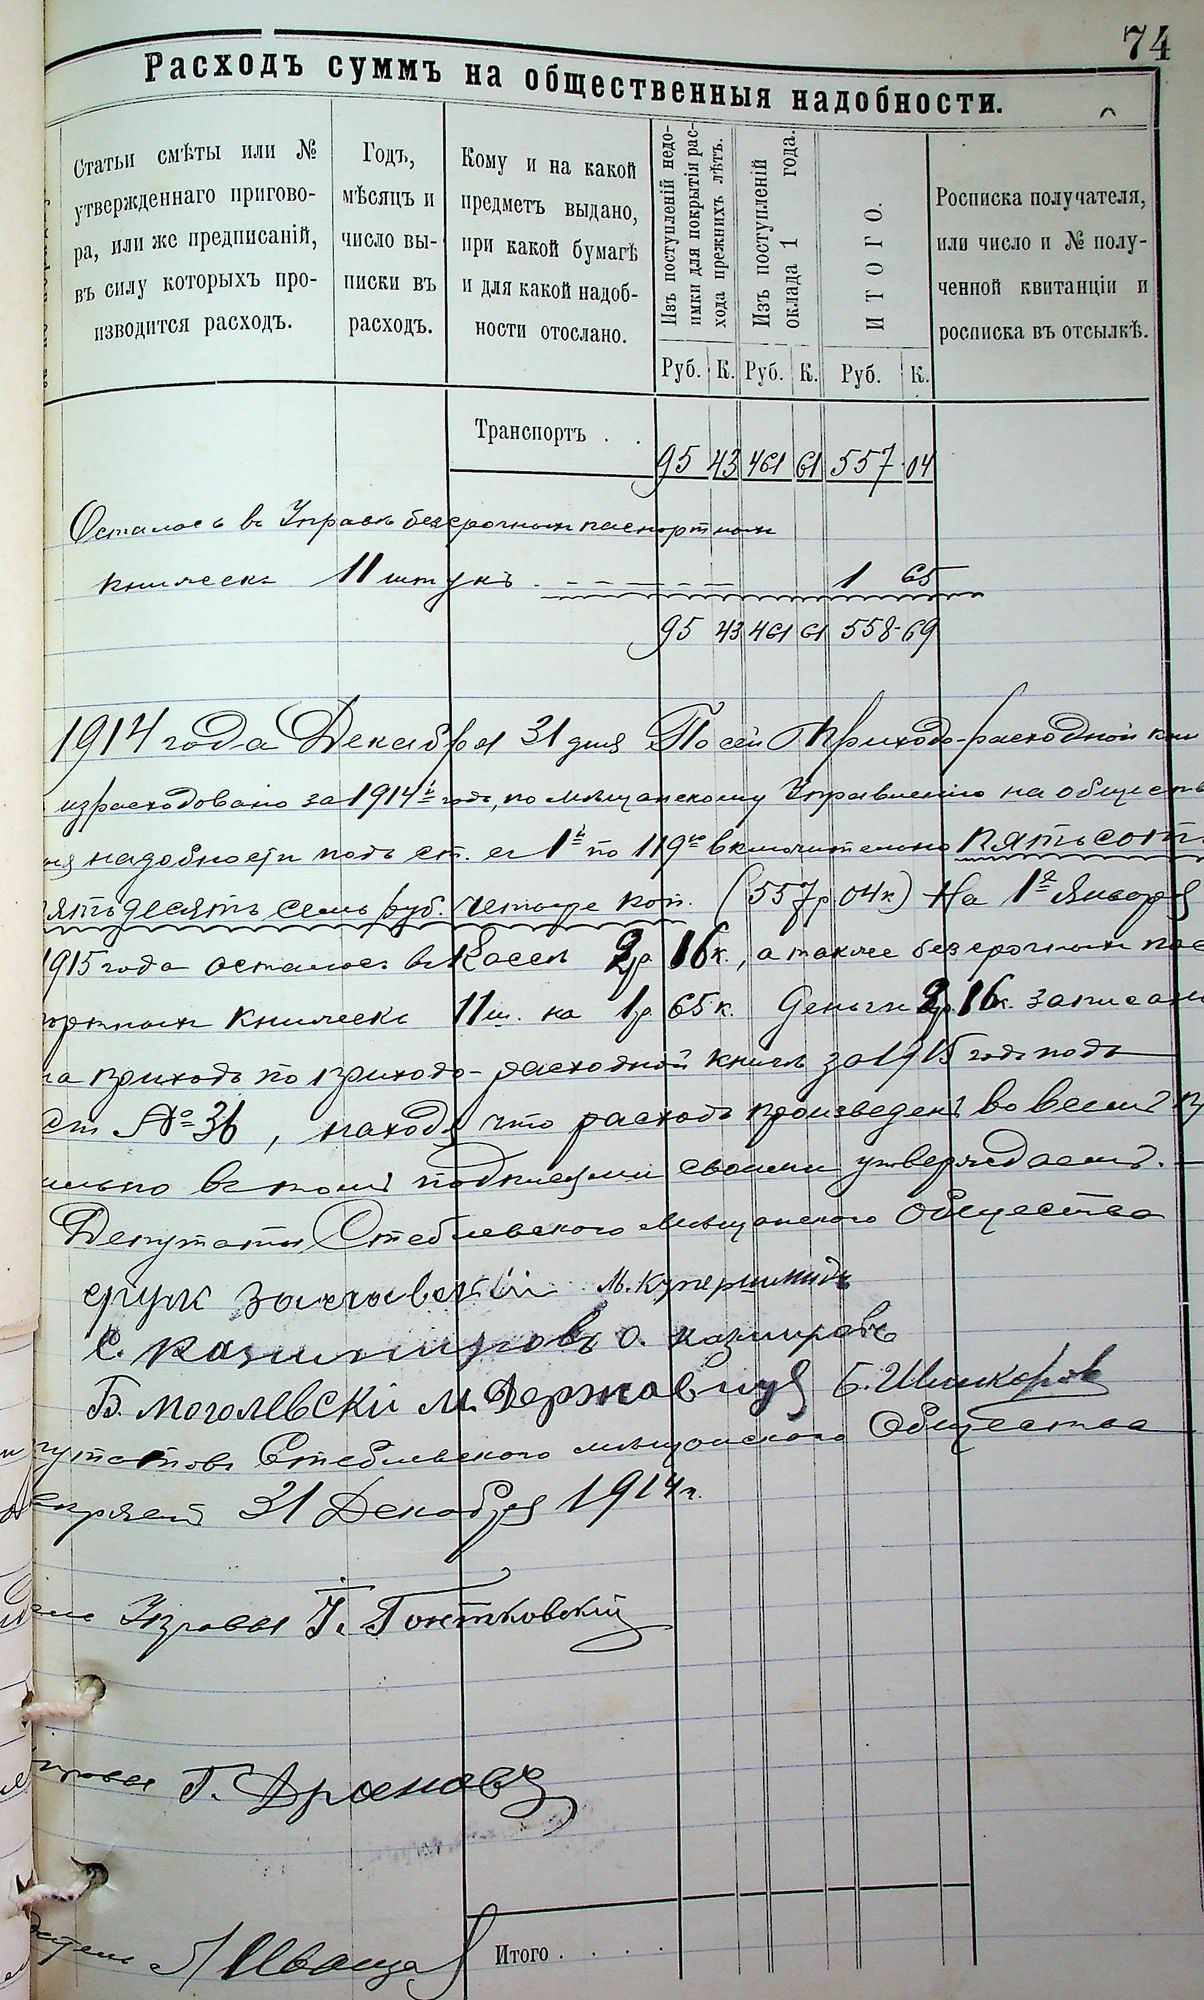 74
Расходъ суммъ на общественныя надобности.
Статьи смѣты или №
утвержденнаго пригово-
ра, или же предписаній,
въ силу которыхъ про-
изводится расходъ.
Годъ,
мѣсяцъ и
число вы-
писки въ
расходъ.
Кому и на какой
предметъ выдано,
при какой бумагѣ
и для какой надоб-
ности отослано.
Изъ поступленій недо-
имки для покрытія рас-
хода прежнихъ лѣтъ.
Изъ поступленій
оклада 1 года.
ИТОГО.
Росписка получателя,
или число и № полу-
ченной квитанціи и
росписка въ отсылкѣ.
Руб. К. Руб. К. Руб. К.
Транспортъ . . 95 43 461 61 557 04
Осталось въ Управѣ безсрочныхъ паспортныхъ
книжекъ 11 штукъ 1 65
95 43 461 61 558 69
1914 года Декабря 31 дня По сей Приходо-расходной кни
израсходовано за 1914й годъ, по мѣщанскому Управленію на обществ
ыя надобности подъ ст. съ 1й по 119ю включительно пятьсотъ
ятьдесятъ семь руб. четыре коп. (557р 04к) На 1е Января
1915 года осталось въ Кассѣ 2р 16к., а также безсрочныхъ пас
ортныхъ книжекъ 11 ш. на 1р 65 к. Деньги 2р. 16к. записаны
на приходъ по приходо-расходной книгѣ за 1915 годъ подъ
ст № 36, находя что расходъ произведенъ во всемъ пр
ильно въ томъ подписями своими утверждаемъ.
Депутаты Стеблевскаго мѣщанскаго Общества
М. Купершмидъ
С. Казимировъ О. Казимировъ
Б. Моголевскі М. Державецъ Б. Шишкоровъ
путатовъ Стеблевскаго мѣщанскаго Общества
31 Декабря 1914 г.
Управы Г. Гонтковскій
Г. Драновъ
Иваща
Итого . . . .